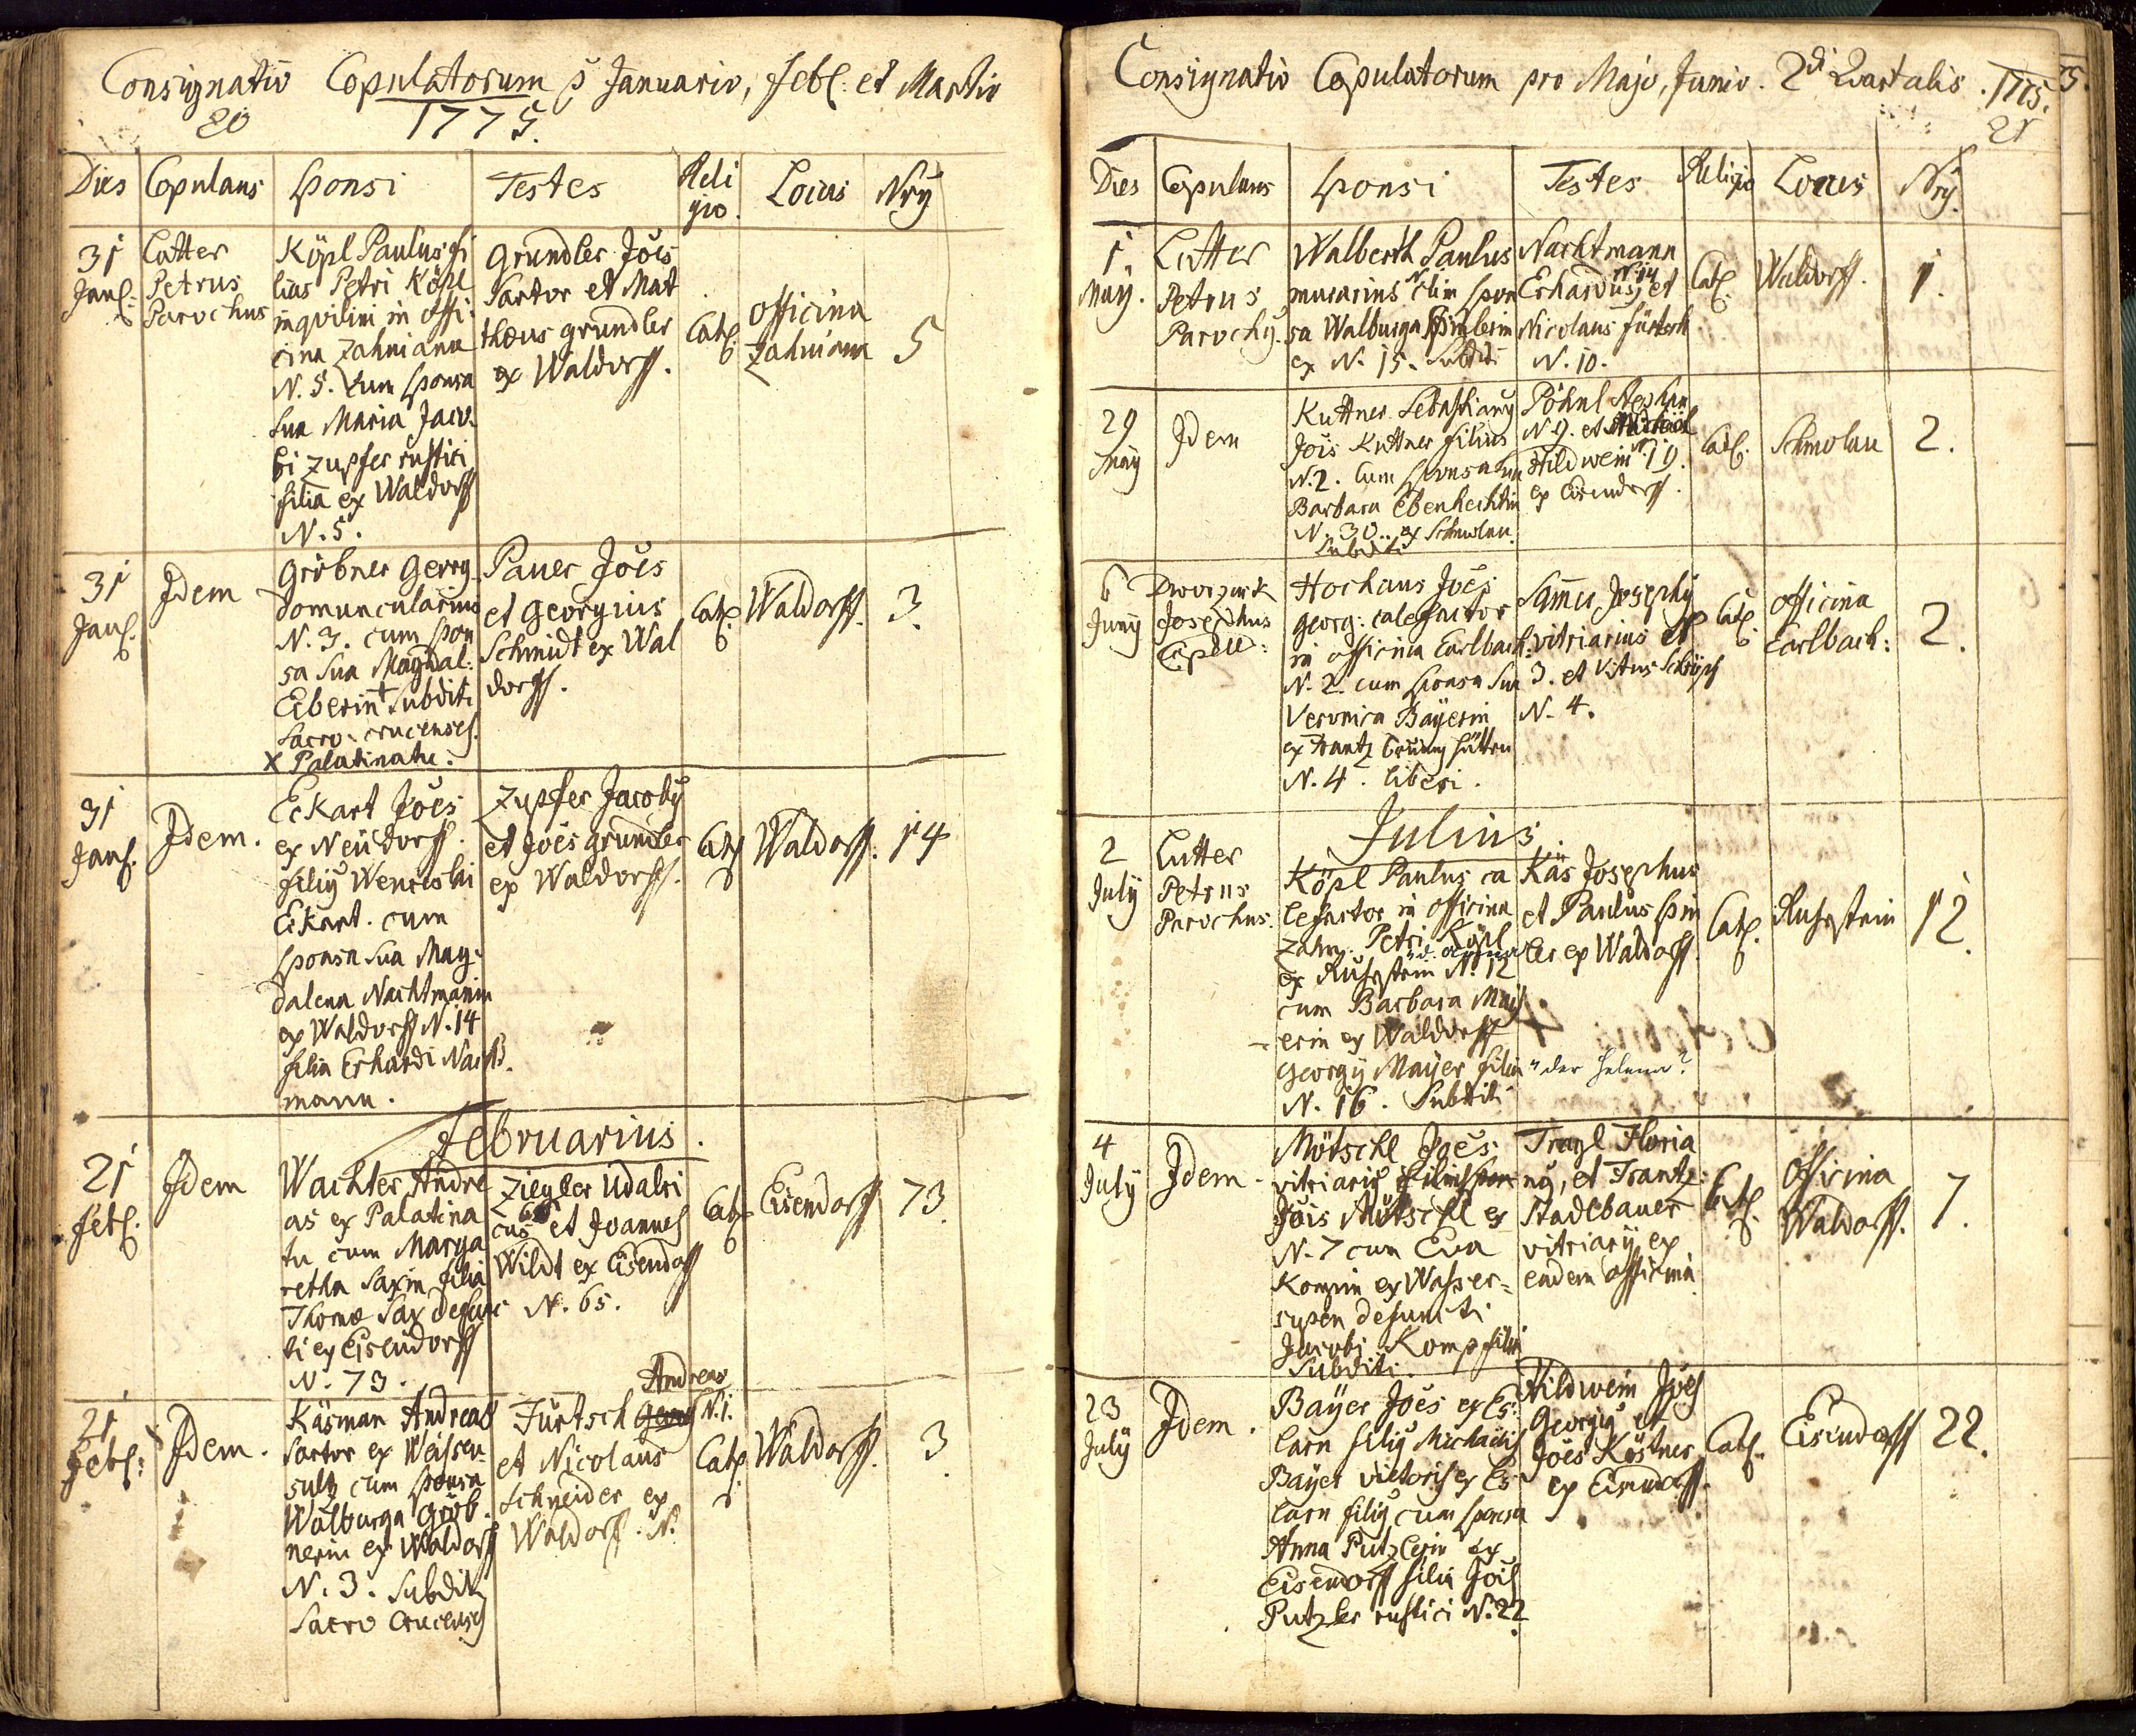 Consignatio Copulatorum p Januario, Febr. et Martio
20 1775.
Dies Copulans Sponsi Testes Reli
gio. Locus Nrꝰ
31
Janr.
Lutter
Petrus
Parochus
Köpl Paulus fi
lius Petri Köpl
inquilini in offi
cina Zahniana
N. 5. cum sponsa
sua Maria Jaco-
bi Zupfer rustici
filia ex Waldorff
N. 5.
Grundler Joẽs
Sartor et Mat
thæus grundler
ex Waldorff.
Cath.
officina
Zahniana
5
31
Janr.
Idem
Gröbner Georg
domuncularius
N. 3. cum spon
sa sua Magdal:
Eiberin + Subditi
Sacro-crucenses.
X Palatinatu.
Pauer Joẽs
et Georgius
Schmidt ex Wal
dorff.
Cath.
Waldorff.
3.
31
Janr.
Idem.
Eckart Joẽs
ex Neüdorff.
filiꝰ Wenceslai
Eckart. cum
sponsa sua Mag-
dalena Nachtmanin
ex Waldorff N. 14
filia Erhardi Nacht-
mann.
Zupfer Jacobꝰ
et Joẽs grundler
ex Waldorff.
Cath
Waldorff.
14
Februarius.
21
Febr.
Idem
Wachter Andre
as ex Palatina
tu cum Marga
retha Saxin filia
Thomæ Sax defunc
ti ex Eisendorff
N. 73.
Ziegler Udalri
cus et Joannes
Wildt ex Eisendorff
N. 65.
Cath
Eisendorff
73.
21
Febr:
Idem.
Käsman Andreas
Sartor ex Weissen-
sultz cum sponsa
Walburga Gröb-
nerin ex Waldorff
N. 3. Subditi
Sacro Crucenses
Andreas
Fürtsch Georg N. 1.
et Nicolaus
Schneider ex
Waldorff. N.
Cath
Waldorff.
3.
Consignatio Copulatorum pro Majo, Junio. 2di Quartalis. 1775.
21
Dies Copulans Sponsi Testes Religio Locus Nrꝰ.
1.
May.
Lutter
Petrus
Parochꝰ.
Walberth Paulus
murarius N. 1. cum spon
sa Walburga Spinlerin
ex N. 15. Subditi
Nachtmann
Erhardus, N. 14 et
Nicolaus Fürtsch
N. 10.
Cath.
Waldorff.
1.
29
May
Idem
Kuttner Sebastianꝰ
Jois Kuttner filius
N. 2. cum sponsa sua
Barbara Ebenhechtin
N. 30. ex Schmolau.
Subditi
Pöhnl Stephan
N. 9. et Michael
Hildwein N. 19.
ex Eisendorff.
Cath.
Schmolau
2.
6
Juny
Dworzack
Josephus
Capell:
Hochaus Joẽs
Georg: calefactor
in officina Carlbach:
N. 2. cum sponsa sua
Veronica Bayerin
ex Frantz hütten
N. 4. liberi.
Josephꝰ
vitriarius ex
3. et Vitus
N. 4.
Cath.
officina
Carlbach:
2.
Julius.
2
July
Lutter
Petrus
Parochus.
Köpl Paulus ca
lefactor in officina
Zahn. Petri Köpl
ex Ruhstein N. 12
cum Barbara May
erin ex Waldorff
Georgy Mayer filia "der Helena?
N. 16. Subditi
Käs Josephus
et Paulus Spin
ler ex Waldorff
Cath.
Ruhstein
12.
4
July
Idem.
Mötschl Joẽs
vitriariꝰ
Jois Mötschl ex
N. 7 cum Eva
Kompin ex Wasser-
supen defuncti
Jacobi Komp filia
Subditi.
Tragl Floria
nꝰ, et Frantz
Stadlbauer
vitriarÿ ex
eadem officina
Cath.
Officina
Waldorff.
7.
23
July
Idem.
Bayer Joẽs ex Es-
larn filiꝰ Michaelis
Bayer vietoris ex Es
larn filiꝰ cum sponsa
Anna Putzlerin ex
Eisendorff filia Jois
Putzler rustici N. 22
Hildwein Joẽs
Georgiꝰ et
Joẽs Köstner
ex Eisendorff.
Cath.
Eisendorff
22.